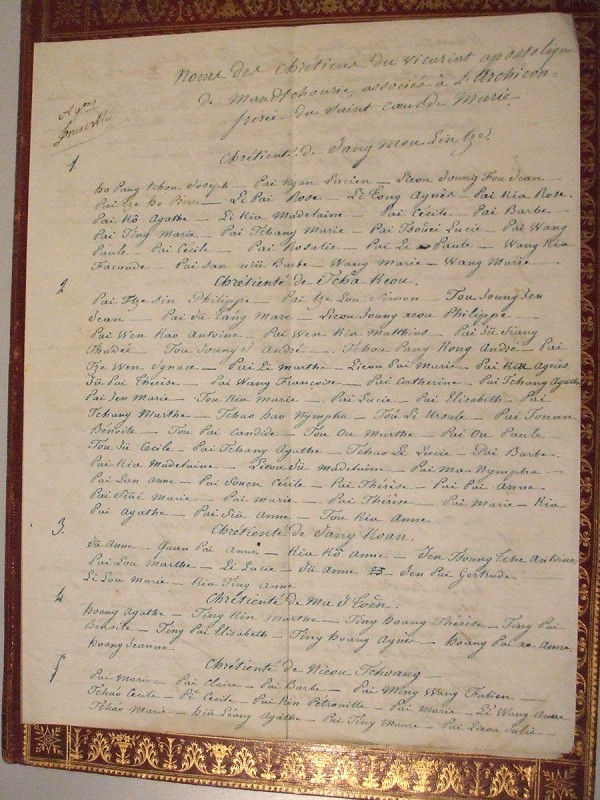 Noms des Chrétiens du vicariat apostolique
de Mandtchourie, associés à l'Archicon-
frérie du Saint Coeur de Marie
1
Chrétienté de Sang mou Lin tze.
ho Pang tchou Joseph — Pai Nyan Lucien — Lieou Joung Fou Jean
Pai tze ho Pierre — Li Pai Rose — Li Tong Agnès — Pai Kia Rose.
Pai Kô Agathe — Li Kia Madelaine — Pai Cécile — Pai Barbe —
Pai Ting Maria — Pai Tchang Marie — Pai Tsouei Lucie — Pai Wang
Paule — Pai Cecile — Pai Rosalie — Pai Li — Paule — Wang Kia
Faconde — Pai San niu Barbe — Wang Marie — Wang Marie —
2 Chrétienté de Tcha Keou.
Pai Tze Sin Philippe — Pai tze Lou Simon Tou Joung Sen
Jean — Pai Sü Tang Marc — Lieou Joung Keou Philippe —
Pai Wen Kao Antoine — Pai Wen Kia Matthias — Pai Sü Siang
Thadée Tou Joung André — Tchou Pang Kong André — Pai
Tze Wen Ignace — Pai Li Marthe — Lieou Pai Marie — Pai Kia Agnès
Sü Pai Thérèse — Pai Wang Françoise — Pai Catherine — Pai Tchang Agathe
Pai Jen Marie — Tou Kia Marie — Pai Lucie — Pai Elisabeth — Pai
Tchang Marthe — Tchao hao Nympha — Tou Li Ursule — Pai Touan
Bénoite — Tou Pai Candide — Tou Ou Marthe — Pai Ou Paule —
Tou Sü Cecile — Pai Tchang Agathe — Tchao Li Lucie — Pai Barbe.
Pai Kia Madelaine — Lieou Sü Madelaine — Pai Ma Nympha —
Pai Lan Anne — Pai Souen Cécile — Pai Thérèse — Pai Pai Anne.
Pai Siüi Marie — Pai Marie — Pai Thérèse — Pai Marie — Kia
Pai Agathe — Pai Siu Anne — Tou Kia Anne
3. Chrétienté de Sang Koan.
Sü Anne — Quan Pai Anne — Kia Kô Anne — Jen Tsoung Tche Antoine
Pai Lou Marthe — Li Lucie — Sü Anne Jen Pai Gertrude.
Li Lou Marie — Kia Ting Anne
4 Chrétienté de Ma
hoang Agathe — Ting Ken Marthe — Ting hoang Thérèse — Ting Pai
Bénoite — Ting Pai Elisabeth — Ting hoang Agnès — hoang Pai Anne
hoang Jeanne
5 Chrétienté de Nieou Tchouang
Pai Marie — Pai Claire — Pai Barbe — Pai Ming Wang Fabien —
Tcháo Cecile — Pé Cecile — Pai Kin Pétronille — Pai Marie — Li Wang Anne
Tcháo Marie — hiü Liáng Agathe — Pai Ting Marie — Pai Lieou Julie